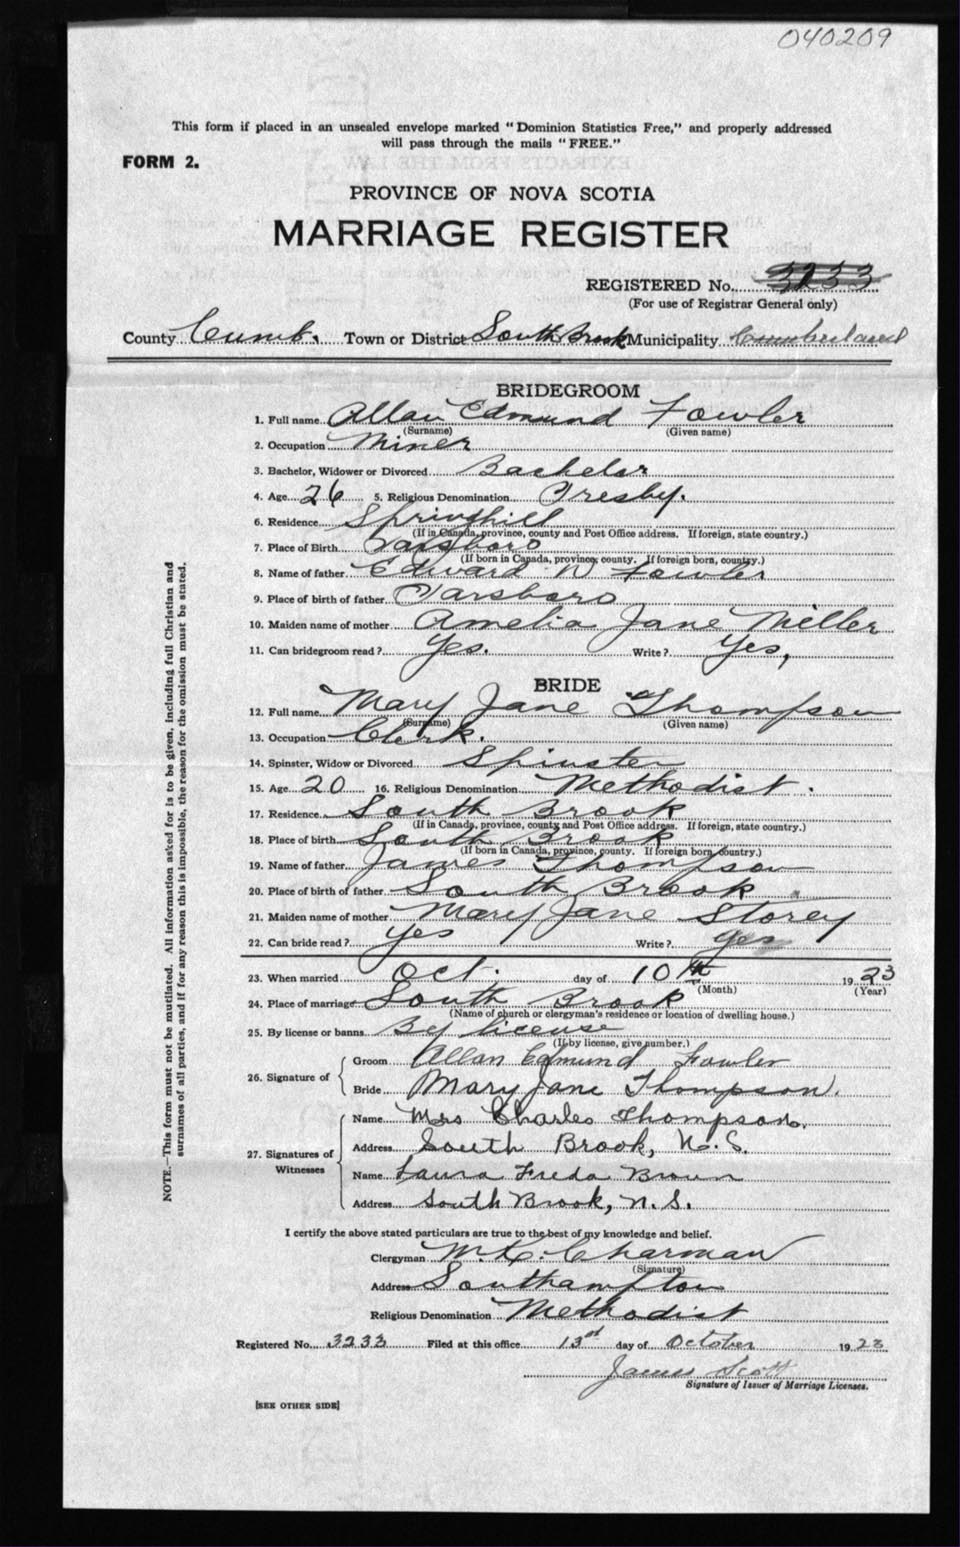 040209
This form if placed in an unsealed envelope marked "Dominion Statistics Free," and properly addressed
will pass through the mails "FREE."
FORM 2.
PROVINCE OF NOVA SCOTIA
MARRIAGE REGISTER
REGISTERED No. 3233
(For use of Registrar General only)
County Cumb. Town or District South Brook Municipality Cumberland
BRIDEGROOM
1. Full name Allan Edmund Fowler
(Surname) (Given name)
2. Occupation Miner
3. Bachelor, Widower or Divorced Bachelor
4. Age 26 5. Religious Denomination Presby.
6. Residence Springhill
(If in Canada, province, county and Post Office address. If foreign, state country.)
7. Place of Birth Parsboro
(If born in Canada, province, county. If foreign born, country.)
8. Name of father Edward W Fowler
9. Place of birth of father Parsboro
10. Maiden name of mother Amelia Jane Miller
11. Can bridegroom read? Yes. Write? Yes,
BRIDE
12. Full name Mary Jane Thompson
(Surname) (Given name)
13. Occupation Clerk.
14. Spinster, Widow or Divorced Spinster
15. Age 20 16. Religious Denomination Methodist.
17. Residence South Brook
(If in Canada, province, county and Post Office address. If foreign, state country.)
18. Place of birth South Brook
(If born in Canada, province, county. If foreign born, country.)
19. Name of father James Thompson
20. Place of birth of father South Brook
21. Maiden name of mother Mary Jane Storey
22. Can bride read? Yes Write? Yes
23. When married Oct. day of 10th 1923
(Month) (Year)
24. Place of marriage South Brook
(Name of church or clergyman's residence or location of dwelling house.)
25. By license or banns By license
(If by license, give number.)
26. Signature of Groom Allan Edmund Fowler
Bride Mary Jane Thompson.
27. Signatures of Witnesses Name Mrs Charles Thompson.
Address South Brook, N.S.
Name Laura Freda Brown
Address South Brook, N.S.
I certify the above stated particulars are true to the best of my knowledge and belief.
Clergyman W.K. Charman
(Signature)
Address Southampton
Religious Denomination Methodist
Registered No. 3233 Filed at this office 13rd day of October 1923
James Scott
Signature of Issuer of Marriage Licenses.
[SEE OTHER SIDE]
NOTE.—This form must not be mutilated. All information asked for is to be given, including full Christian and
surnames of all parties, and if for any reason this is impossible, the reason for the omission must be stated.